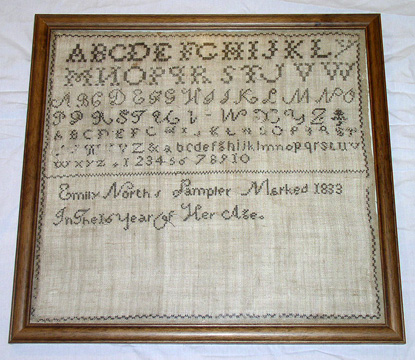 ABCDEFGHIJKLM
MNOPQRSTUVW
ABCDEFGHIJKLMNO
PQRSTUVWXYZ
ABCDEFGHIJKLMNOPQRST
UVWXYZ&abcdefghijklmnopqrstuv
wxyz 12345678910
Emily North's Sampler Marked 1833
In The 16 Year of Her Age.